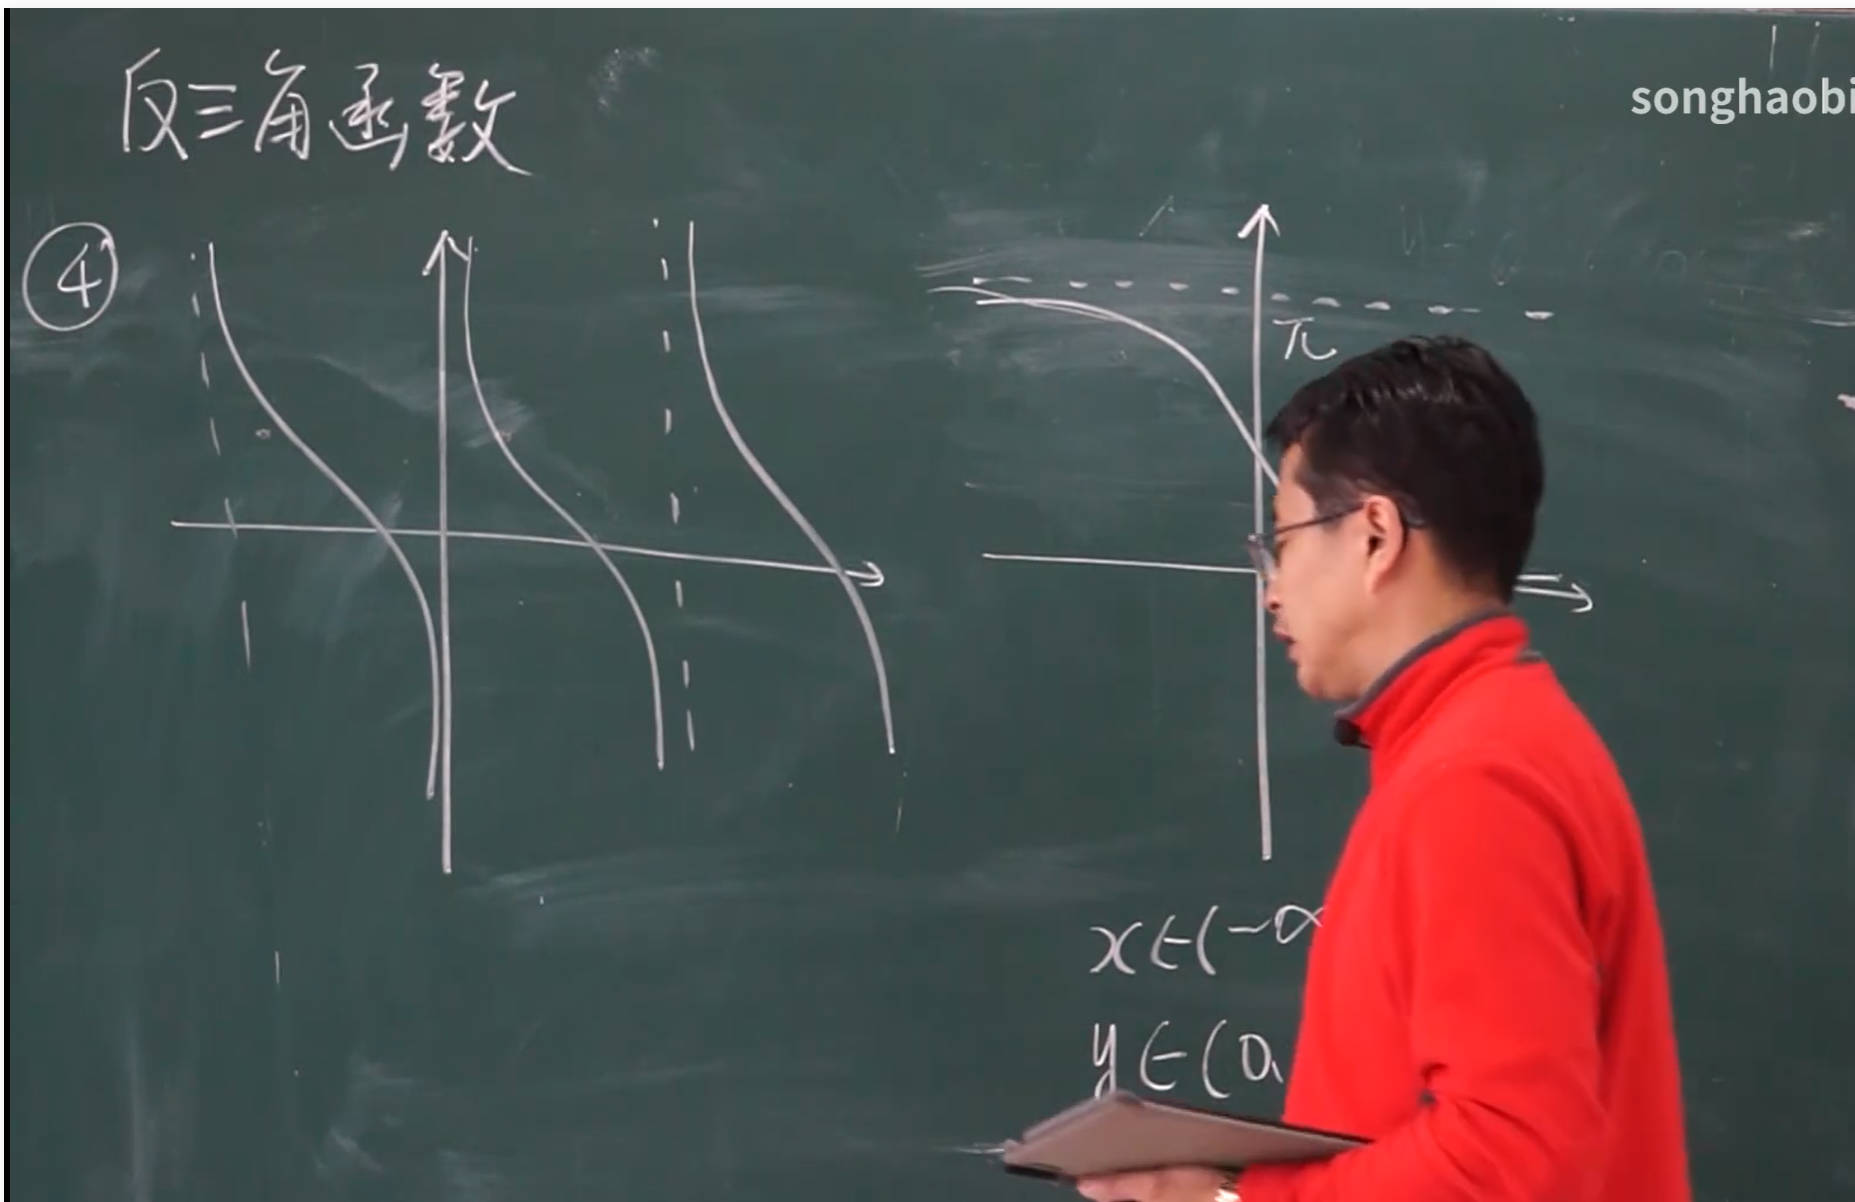 反三角函数
songhaobi
④
π
x∈(-∞
y∈(0,